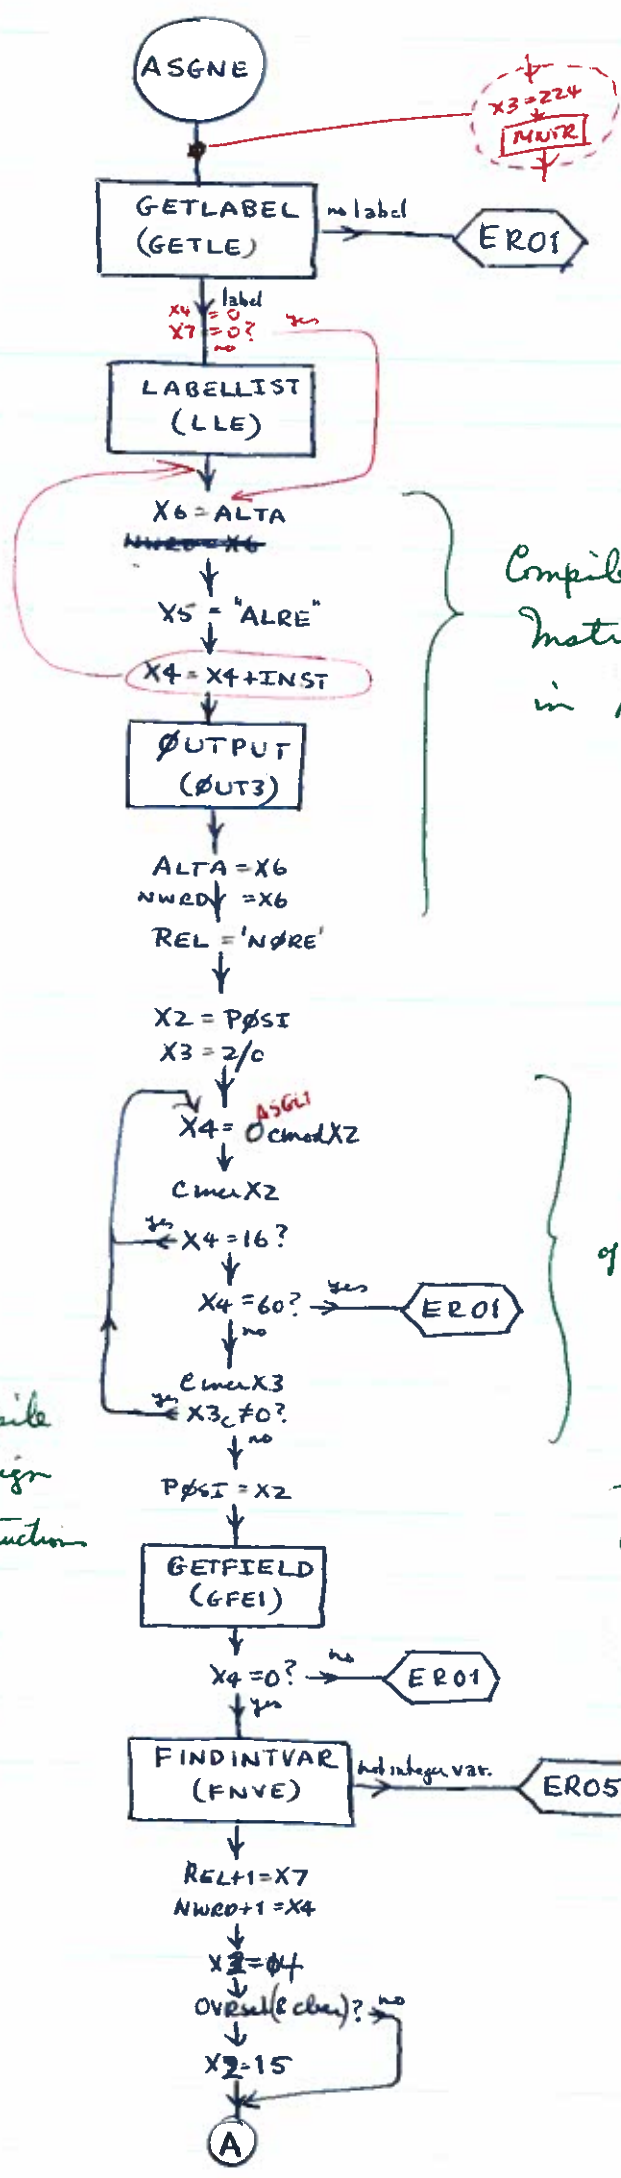 ASGNE
X3=224
MNTR
GETLABEL
(GETLE)
no label
ER01
label
X4 = 0
X7 = 0?
yes
no
LABELLIST
(LLE)
X6 = ALTA
NWRD = X6
X5 = "ALRE"
X4 = X4+INST
ØUTPUT
(ØUT3)
ALTA = X6
NWRD = X6
REL = 'NØRE'
Compil
Instr
in
X2 = PØSI
X3 = 2/0
ASGL1
X4 = 0 cmod X2
Cmcr X2
yes
X4 = 16?
X4 = 60?
yes
ER01
no
of
Cmcr X3
yes
X3c ≠ 0?
no
PØSI = X2
ile
ign
uction
GETFIELD
(GFE1)
X4 = 0?
no
ER01
yes
FINDINTVAR
(FNVE)
not integer var.
ER05
REL+1 = X7
NWRD+1 = X4
=04
OVR set (& clear)?
no
=15
A